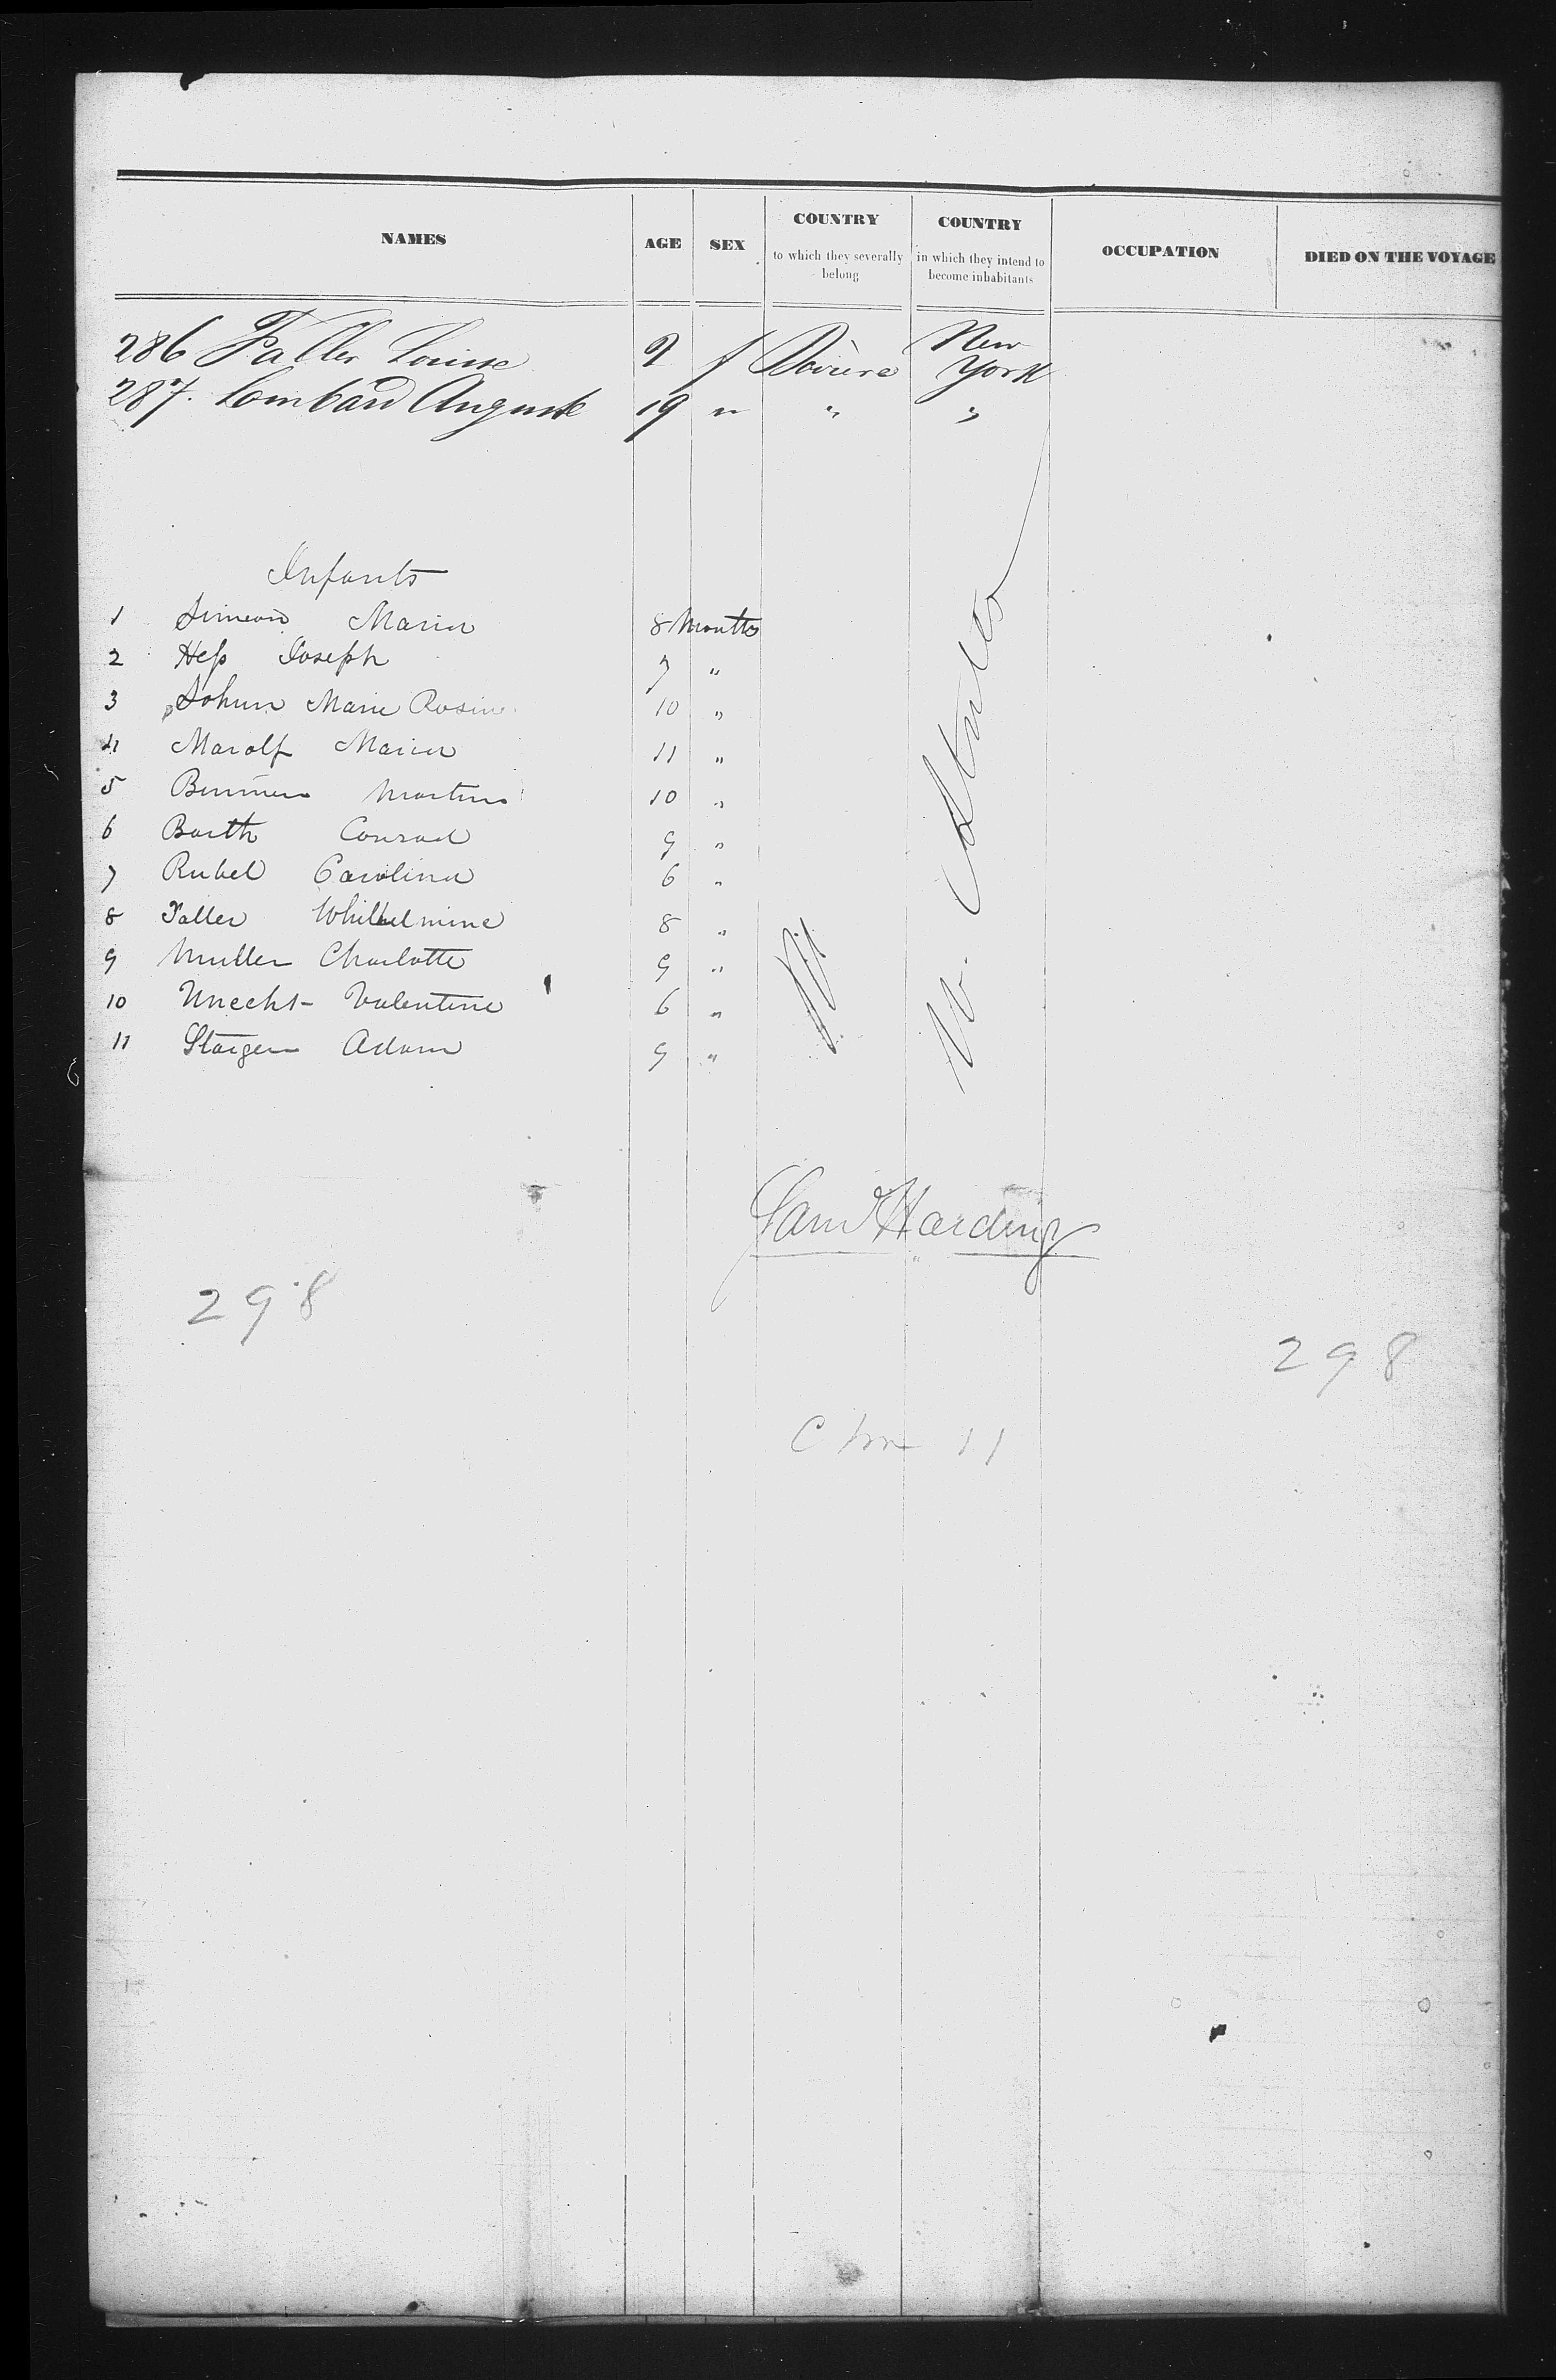 NAMES AGE SEX COUNTRY to which they severally belong COUNTRY in which they intend to become inhabitants OCCUPATION DIED ON THE VOYAGE
286 Faller Louise 9 f Bavière New York
287. Lombard Auguste 19 m " "
Infants
1 Simeon Maria 8 Months
2 Heſs Joseph 7 "
3 Marie Rosine 10 "
4 Marolf Maria 11 "
5 Martin 10 "
6 Barth Conrad 9 "
7 Rubel Carolina 6 "
8 Faller Whilhelmine 8 "
9 Muller Charlotte 9 "
10 Knecht Valentine 6 "
11 Staiger Adam 9 "
U. States
Saml Harding
298
298
11